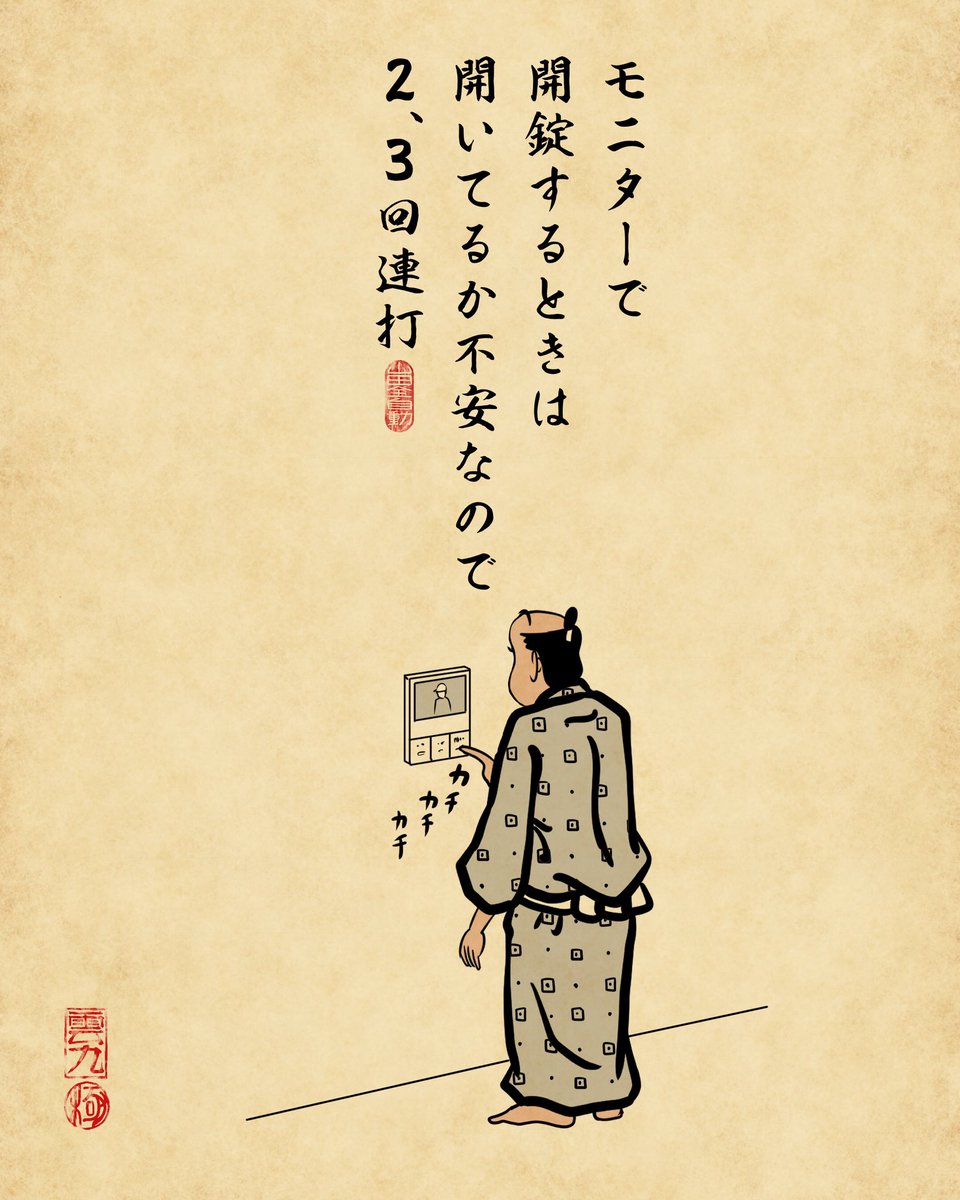 モニターで
開錠するときは
開いてるか不安なので
2、3回連打
カチ
カチ
カチ